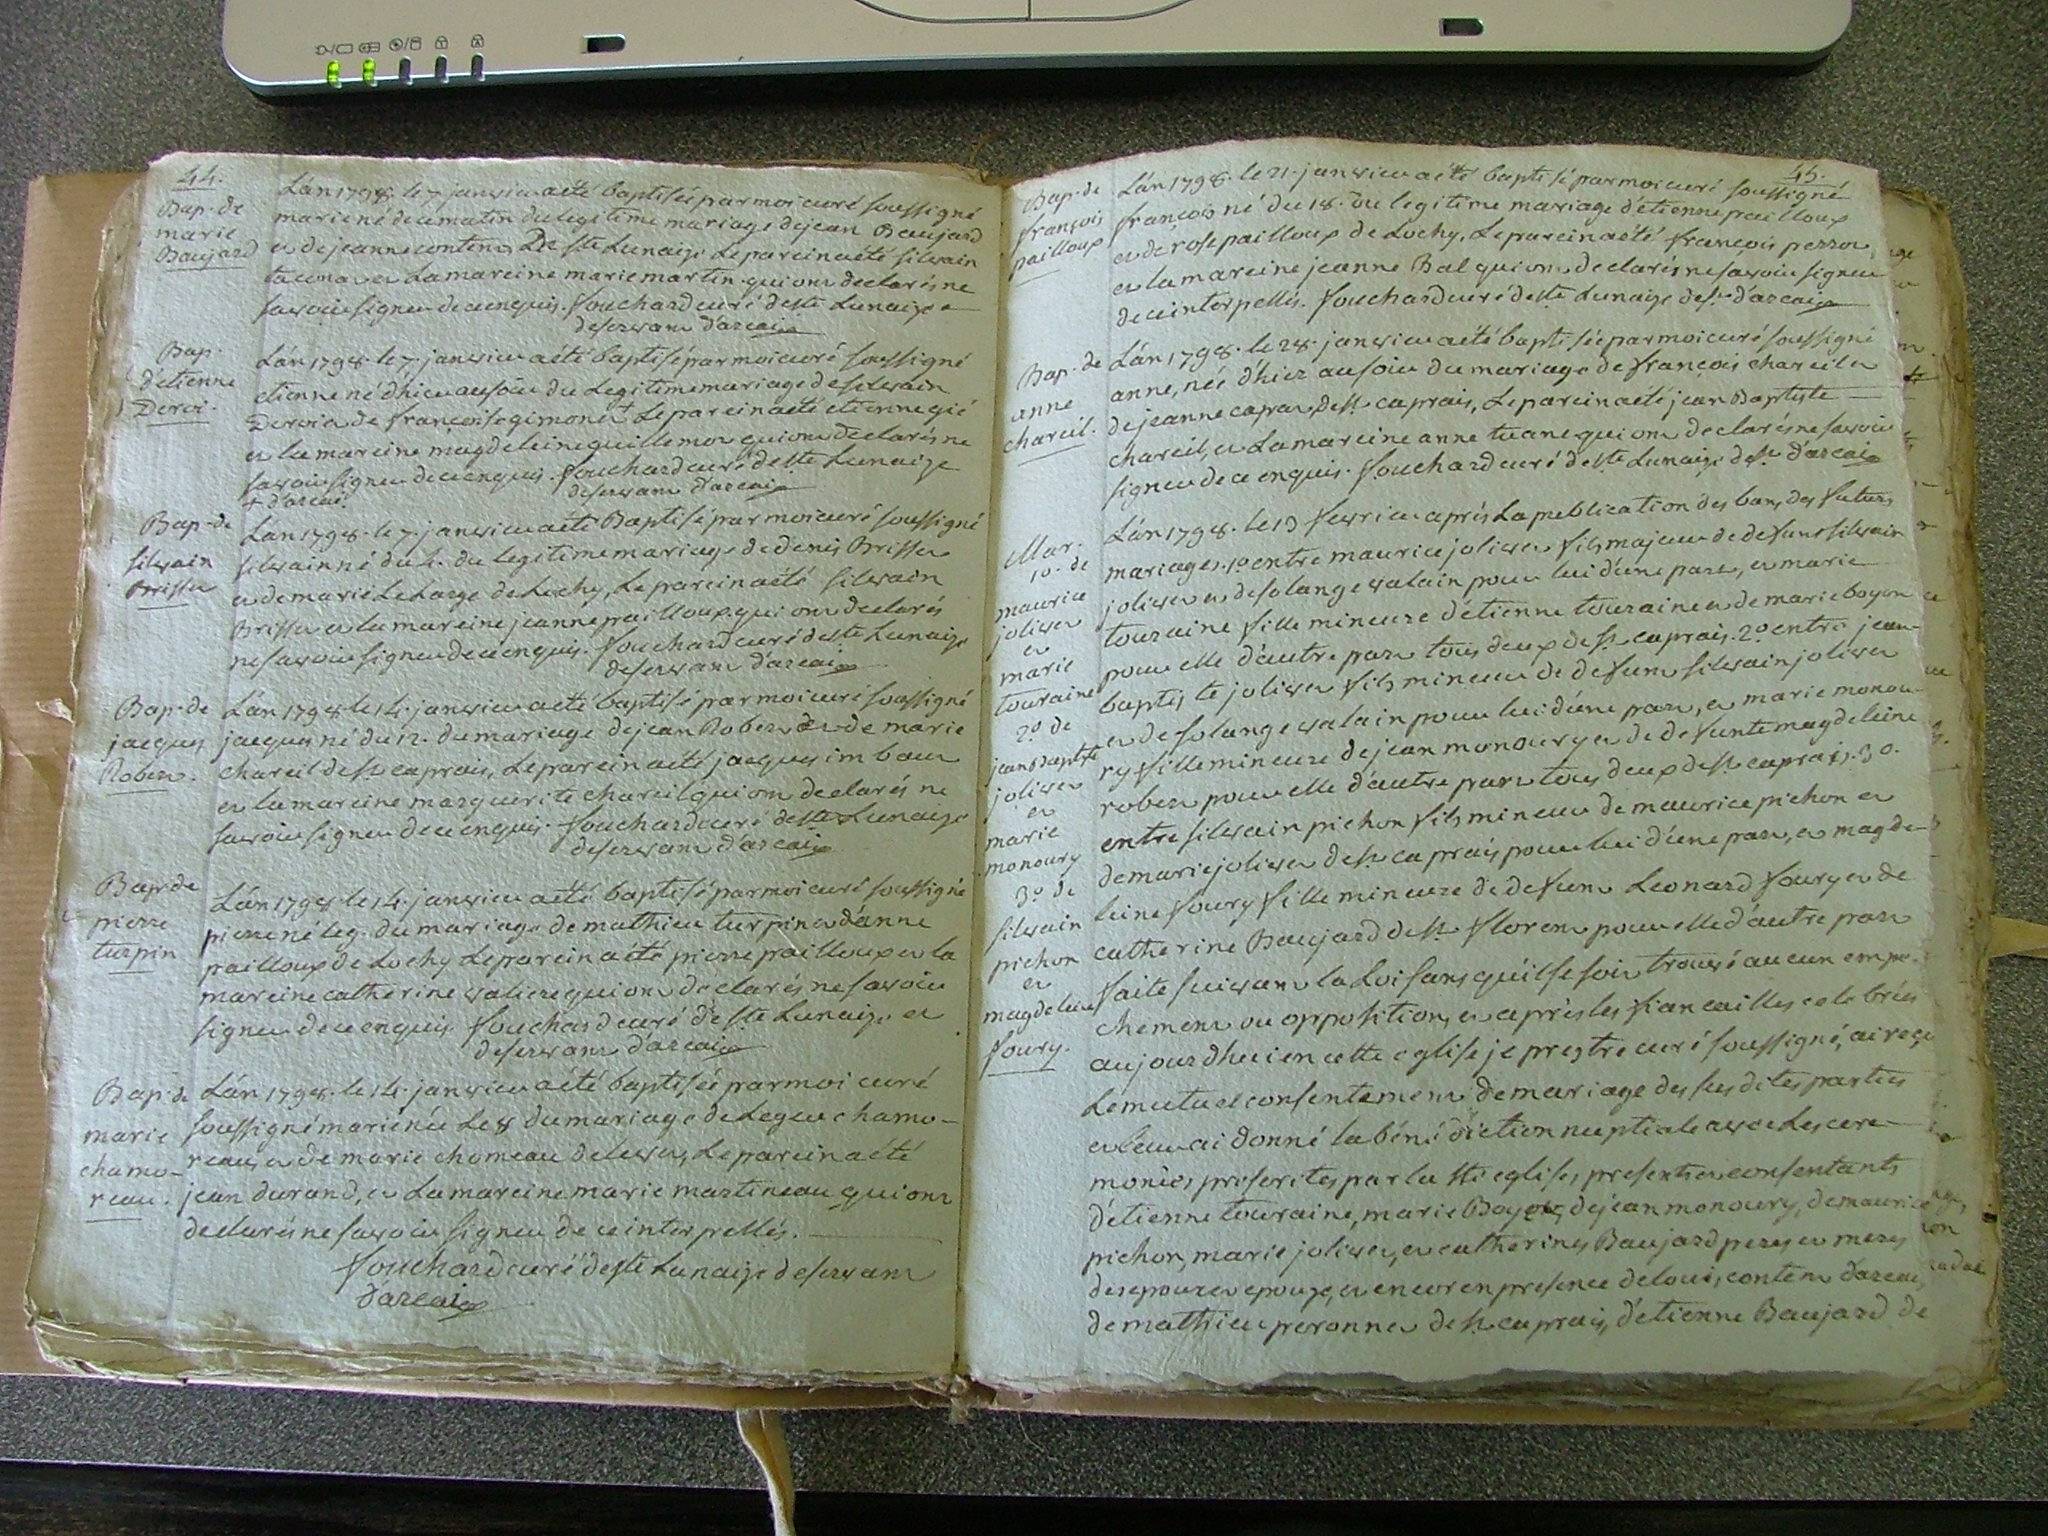 44.
Bap. de
marie
Baujard
Lán 1798. le 7 janvier a été baptisée par moi curé soussigné
marie né de ce matin du legitime mariage de jean Baujard
et de jeanne contin, De ste Lunaize Le parein a été silvain
et La mareine marie martin qui ont declarés ne
savoir signer de ce enquis. fouchard curé de ste Lunaize
deservant d'arcai
Bap.
d'etienne
Deroi.
Lán 1798. le 7. janvier a été baptisé par moi curé soussigné
etienne né d'hier au soir du Legitime mariage de silvain
Deroi et de françoise gimonet Le parein a été etienne gié
et la mareine magdeleine guillemot qui ont declarés ne
savoir signer de ce enquis. fouchard curé de ste Lunaize
+ d'arcai deservant d'arcai
Bap. de
silvain
Brisset
Lán 1798. le 7. janvier a été Baptisé par moi curé soussigné
silvain né du 4. du legitime mariage de denis Brisset
et de marie Le Large de Lochy, Le parein a été silvain
Brisset et la mareine jeanne pailloux qui ont declarés
ne savoir signer de ce enquis. fouchard curé de ste Lunaize
deservant d'arcai
Bap. de
jacques
Robert.
Lán 1798 le 14. janvier a été baptisé par moi curé soussigné
jacques né du 12. du mariage de jean Robert et de marie
chareil de st caprais, Le parein a été jacques imbaut
et la mareine marguerite chareil qui ont declarés ne
savoir signer de ce enquis. fouchard curé de ste Lunaize
deservant d'arcai
Bap. de
pierre
turpin
Lán 1798. le 14. janvier a été baptisé par moi curé soussigné
pierre né le 9. du mariage de mathieu turpin et d'anne
pailloux de Lochy Le parein a été pierre pailloux et la
mareine catherine valiere qui ont declarés ne savoir
signer de ce enquis fouchard curé de ste Lunaize et
deservant d'arcai
Bap. de
marie
chamo-
reau.
Lán 1798. le 14. janvier a été baptisée par moi curé
soussigné marie née Le 8 du mariage de Leger chamo-
reau, et de marie chomeau de Levet, Le parein a été
jean durand, et La mareine marie martineau qui ont
declarés ne savoir signer de ce interpellés.
fouchard curé de ste Lunaize deservant
d'arcai
45.
Bap. de
françois
pailloux
Lán 1798. le 21. janvier a été baptisé par moi curé soussigné
françois né du 18. du legitime mariage d'etienne pailloux
et de rose pailloux de Lochy, Le parein a été françois perrot,
et la mareine jeanne Bal qui ont declarés ne savoir signer
de ce interpellés. fouchard curé de ste Lunaize desst d'arcai
Bap. de
anne
chareil.
Lán 1798. le 28. janvier a été baptisée par moi curé soussigné
anne, née d'hier au soir du mariage de françois chareil et
de jeanne caprat de st caprais, Le parein a été jean Baptiste
chareil, et La mareine anne tuane qui ont declarés ne savoir
signer de ce enquis. fouchard curé de ste Lunaize desst d'arcai
Mar.
1o. de
maurice
jolivet
et
marie
touraine
2o de
jean bapte
jolivet
et
marie
monoury
3o de
silvain
pichon
et
magdeleine
foury.
Lán 1798. le 13 fevrier aprés La publication des bans des futurs
mariages. 1o entre maurice jolivet fils majeur de defunt silvain
jolivet et de solange valain pour lui d'une part, et marie
touraine fille mineure d'etienne touraine et de marie boyon
pour elle d'autre part tous deux de st caprais. 2o entre jean-
baptiste jolivet fils mineur de defunt silvain jolivet
et de solange valain pour lui d'une part, et marie monou-
ry fille mineure de jean monoury et de defunte magdeleine
robert pour elle d'autre part tous deux de st caprais. 3o.
entre silvain pichon fils mineur de maurice pichon et
de marie jolivet de st caprais pour lui d'une part, et magde-
leine foury fille mineure de defunt Leonard foury et de
catherine Baujard de st florent pour elle d'autre part
faite suivant la Loi sans qu'il se soit trouvé aucun empe-
chement ou opposition, et aprés les fiancailles celebrées
aujourdhui en cette eglise je prestre curé soussigné, ai reçu
Le mutuel consentement de mariage des sus dites parties
et leur ai donné la bénédiction nuptiale avec Les cere-
monies prescrites par la ste eglise, presents et consentants
d'etienne touraine, marie Boyon, de jean monoury, de maurice
pichon, marie jolivet, et catherine Baujard peres et meres
des epoux et epouze, et encor en presence de Loui, contin d'arcai,
de mathieu peronnet de st caprais, d'etienne Baujard de